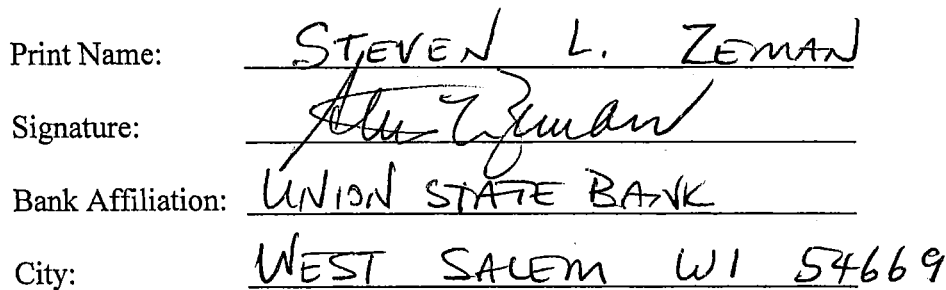 Print Name: STEVEN L. ZEMAN
Signature: Steven L. Zeman
Bank Affiliation: UNION STATE BANK
City: WEST SALEM WI 54669